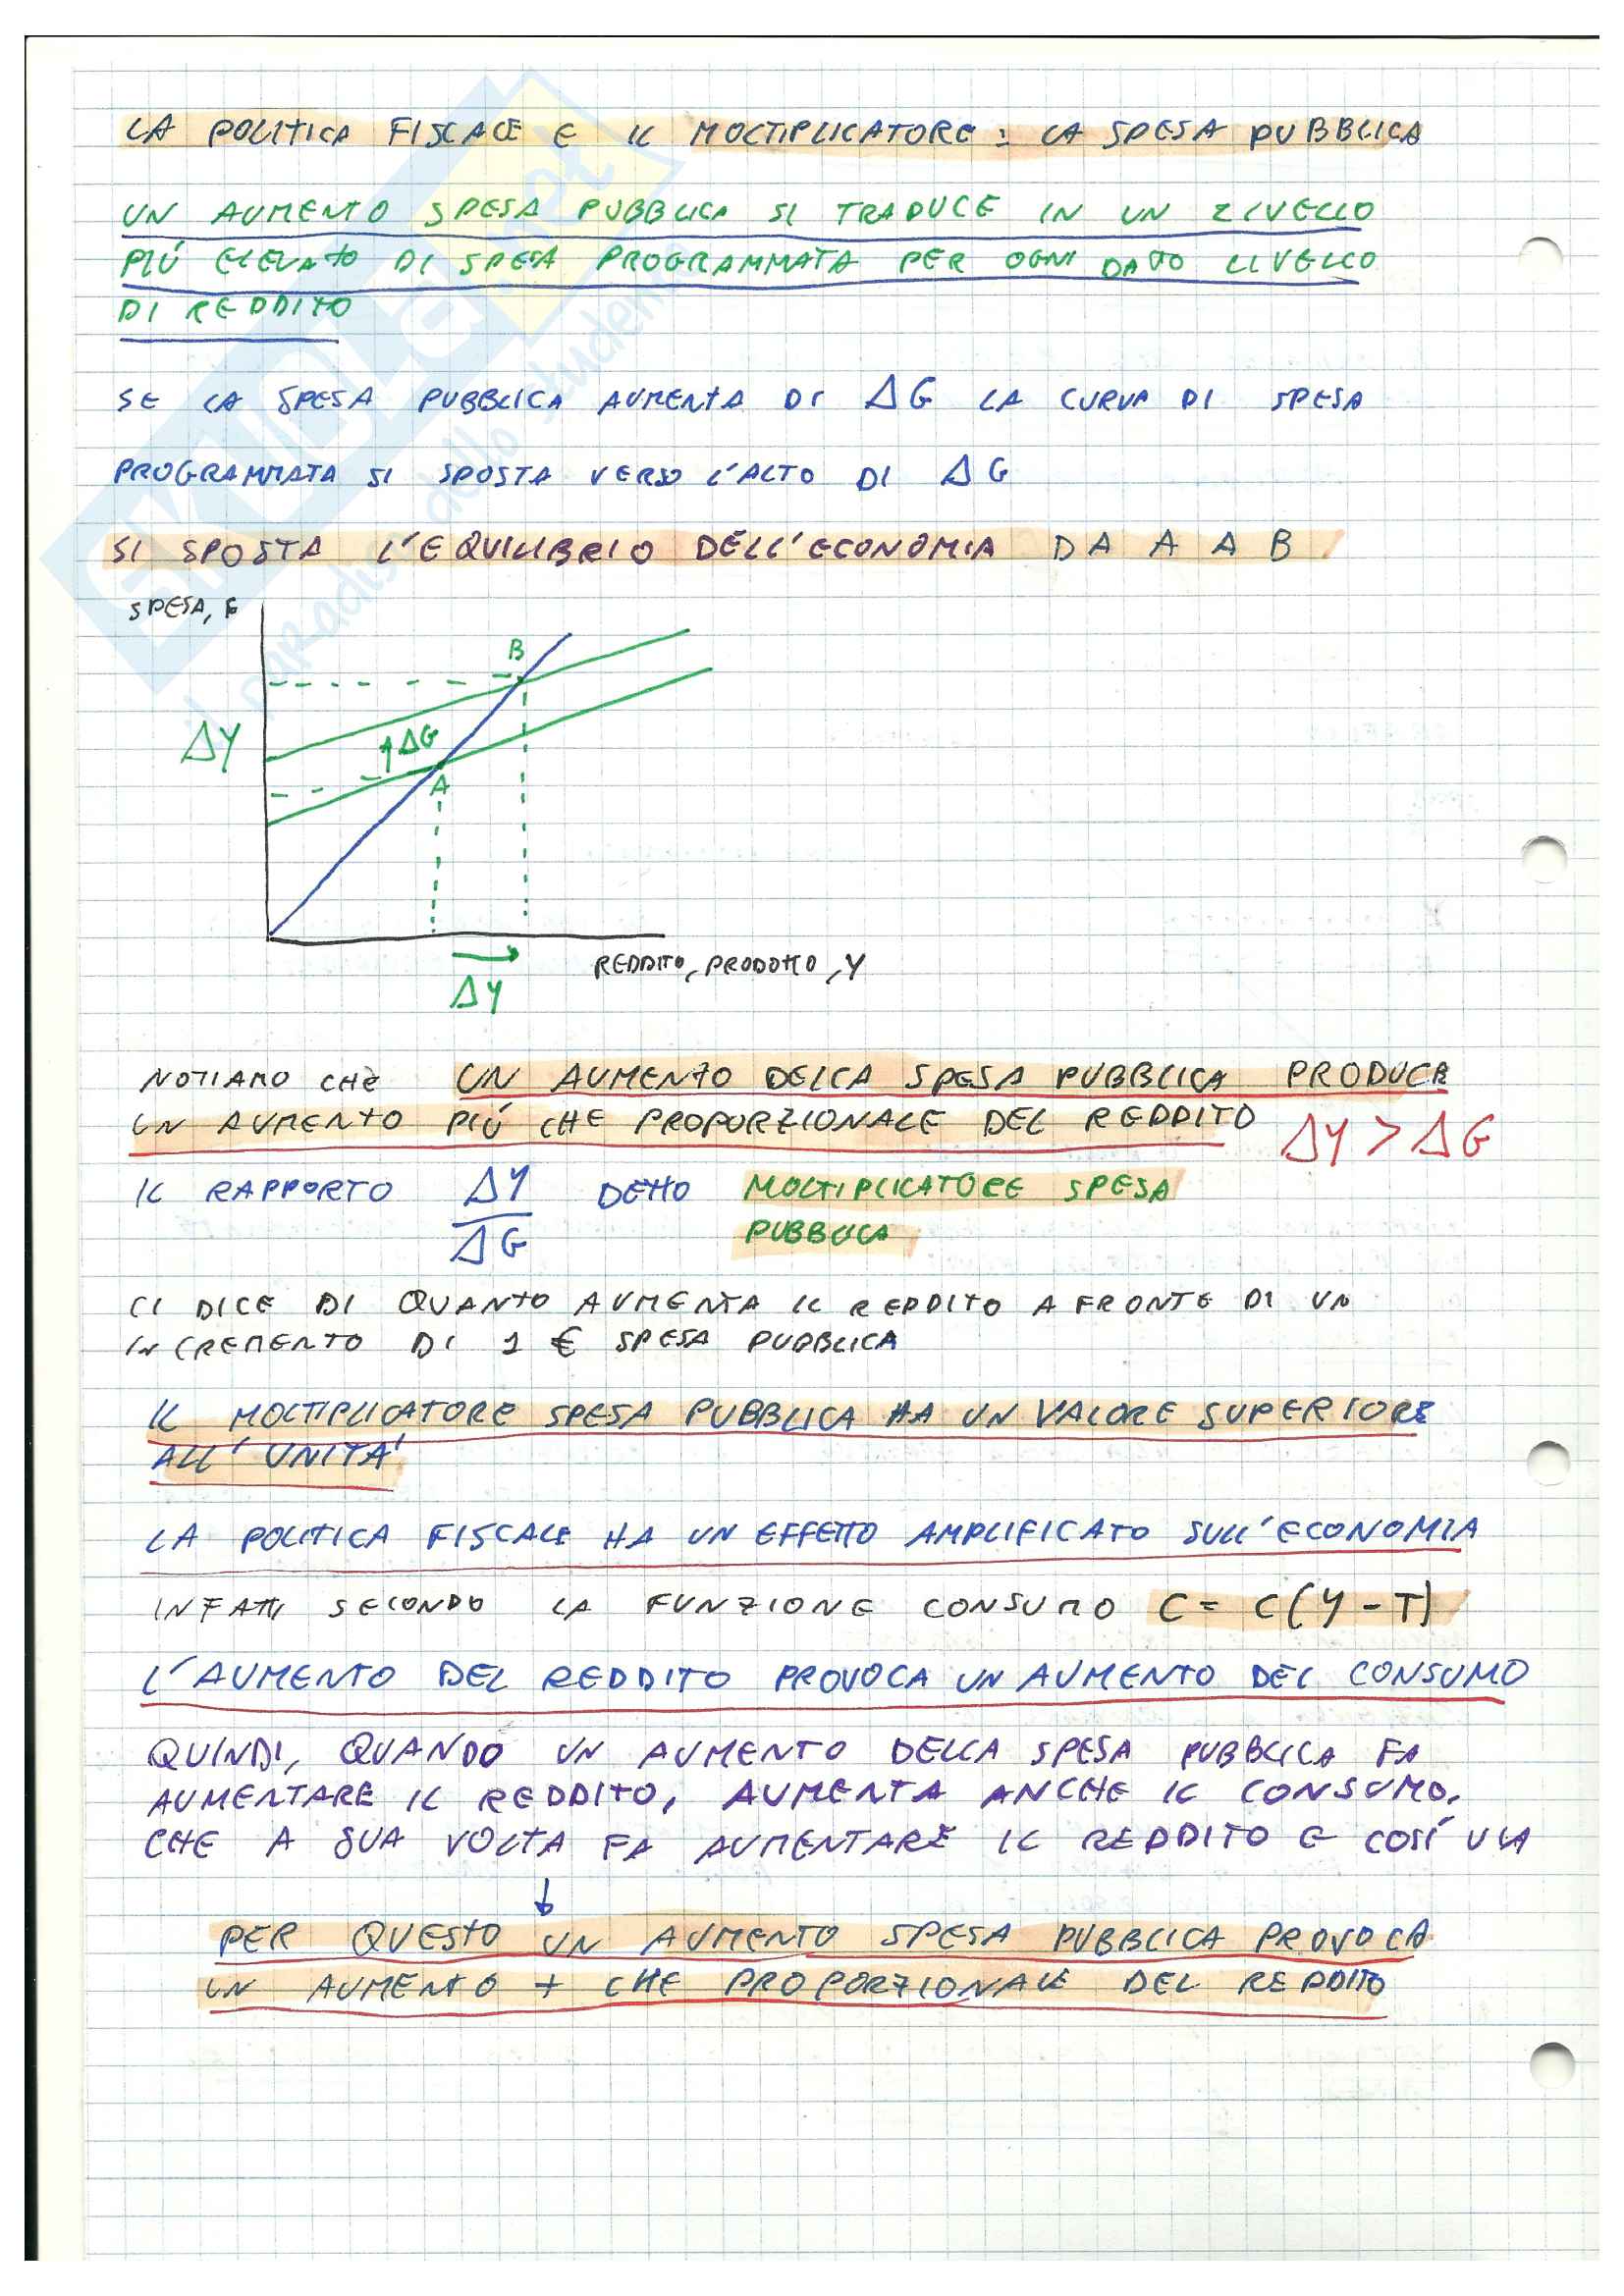 LA POLITICA FISCALE E IL MOLTIPLICATORE: LA SPESA PUBBLICA
UN AUMENTO SPESA PUBBLICA SI TRADUCE IN UN LIVELLO
PIÚ ELEVATO DI SPESA PROGRAMMATA PER OGNI DATO LIVELLO
DI REDDITO
SE LA SPESA PUBBLICA AUMENTA DI ΔG LA CURVA DI SPESA
PROGRAMMATA SI SPOSTA VERSO L'ALTO DI ΔG
SI SPOSTA L'EQUILIBRIO DELL'ECONOMIA DA A A B
SPESA, E
B
ΔY
ΔG
A
REDDITO, PRODOTTO, Y
ΔY
NOTIAMO CHE UN AUMENTO DELLA SPESA PUBBLICA PRODUCE
UN AUMENTO PIÚ CHE PROPORZIONALE DEL REDDITO ΔY > ΔG
IL RAPPORTO ΔY/ΔG DETTO MOLTIPLICATORE SPESA
PUBBLICA
CI DICE DI QUANTO AUMENTA IL REDDITO A FRONTE DI UN
INCREMENTO DI 1 € SPESA PUBBLICA
IL MOLTIPLICATORE SPESA PUBBLICA HA UN VALORE SUPERIORE
ALL'UNITA'
LA POLITICA FISCALE HA UN EFFETTO AMPLIFICATO SULL'ECONOMIA
INFATTI SECONDO LA FUNZIONE CONSUMO C = C(Y-T)
L'AUMENTO DEL REDDITO PROVOCA UN AUMENTO DEL CONSUMO
QUINDI, QUANDO UN AUMENTO DELLA SPESA PUBBLICA FA
AUMENTARE IL REDDITO, AUMENTA ANCHE IL CONSUMO,
CHE A SUA VOLTA FA AUMENTARE IL REDDITO E COSÍ VIA
PER QUESTO UN AUMENTO SPESA PUBBLICA PROVOCA
UN AUMENTO + CHE PROPORZIONALE DEL REDDITO
skuola.net
il paradiso dello studente